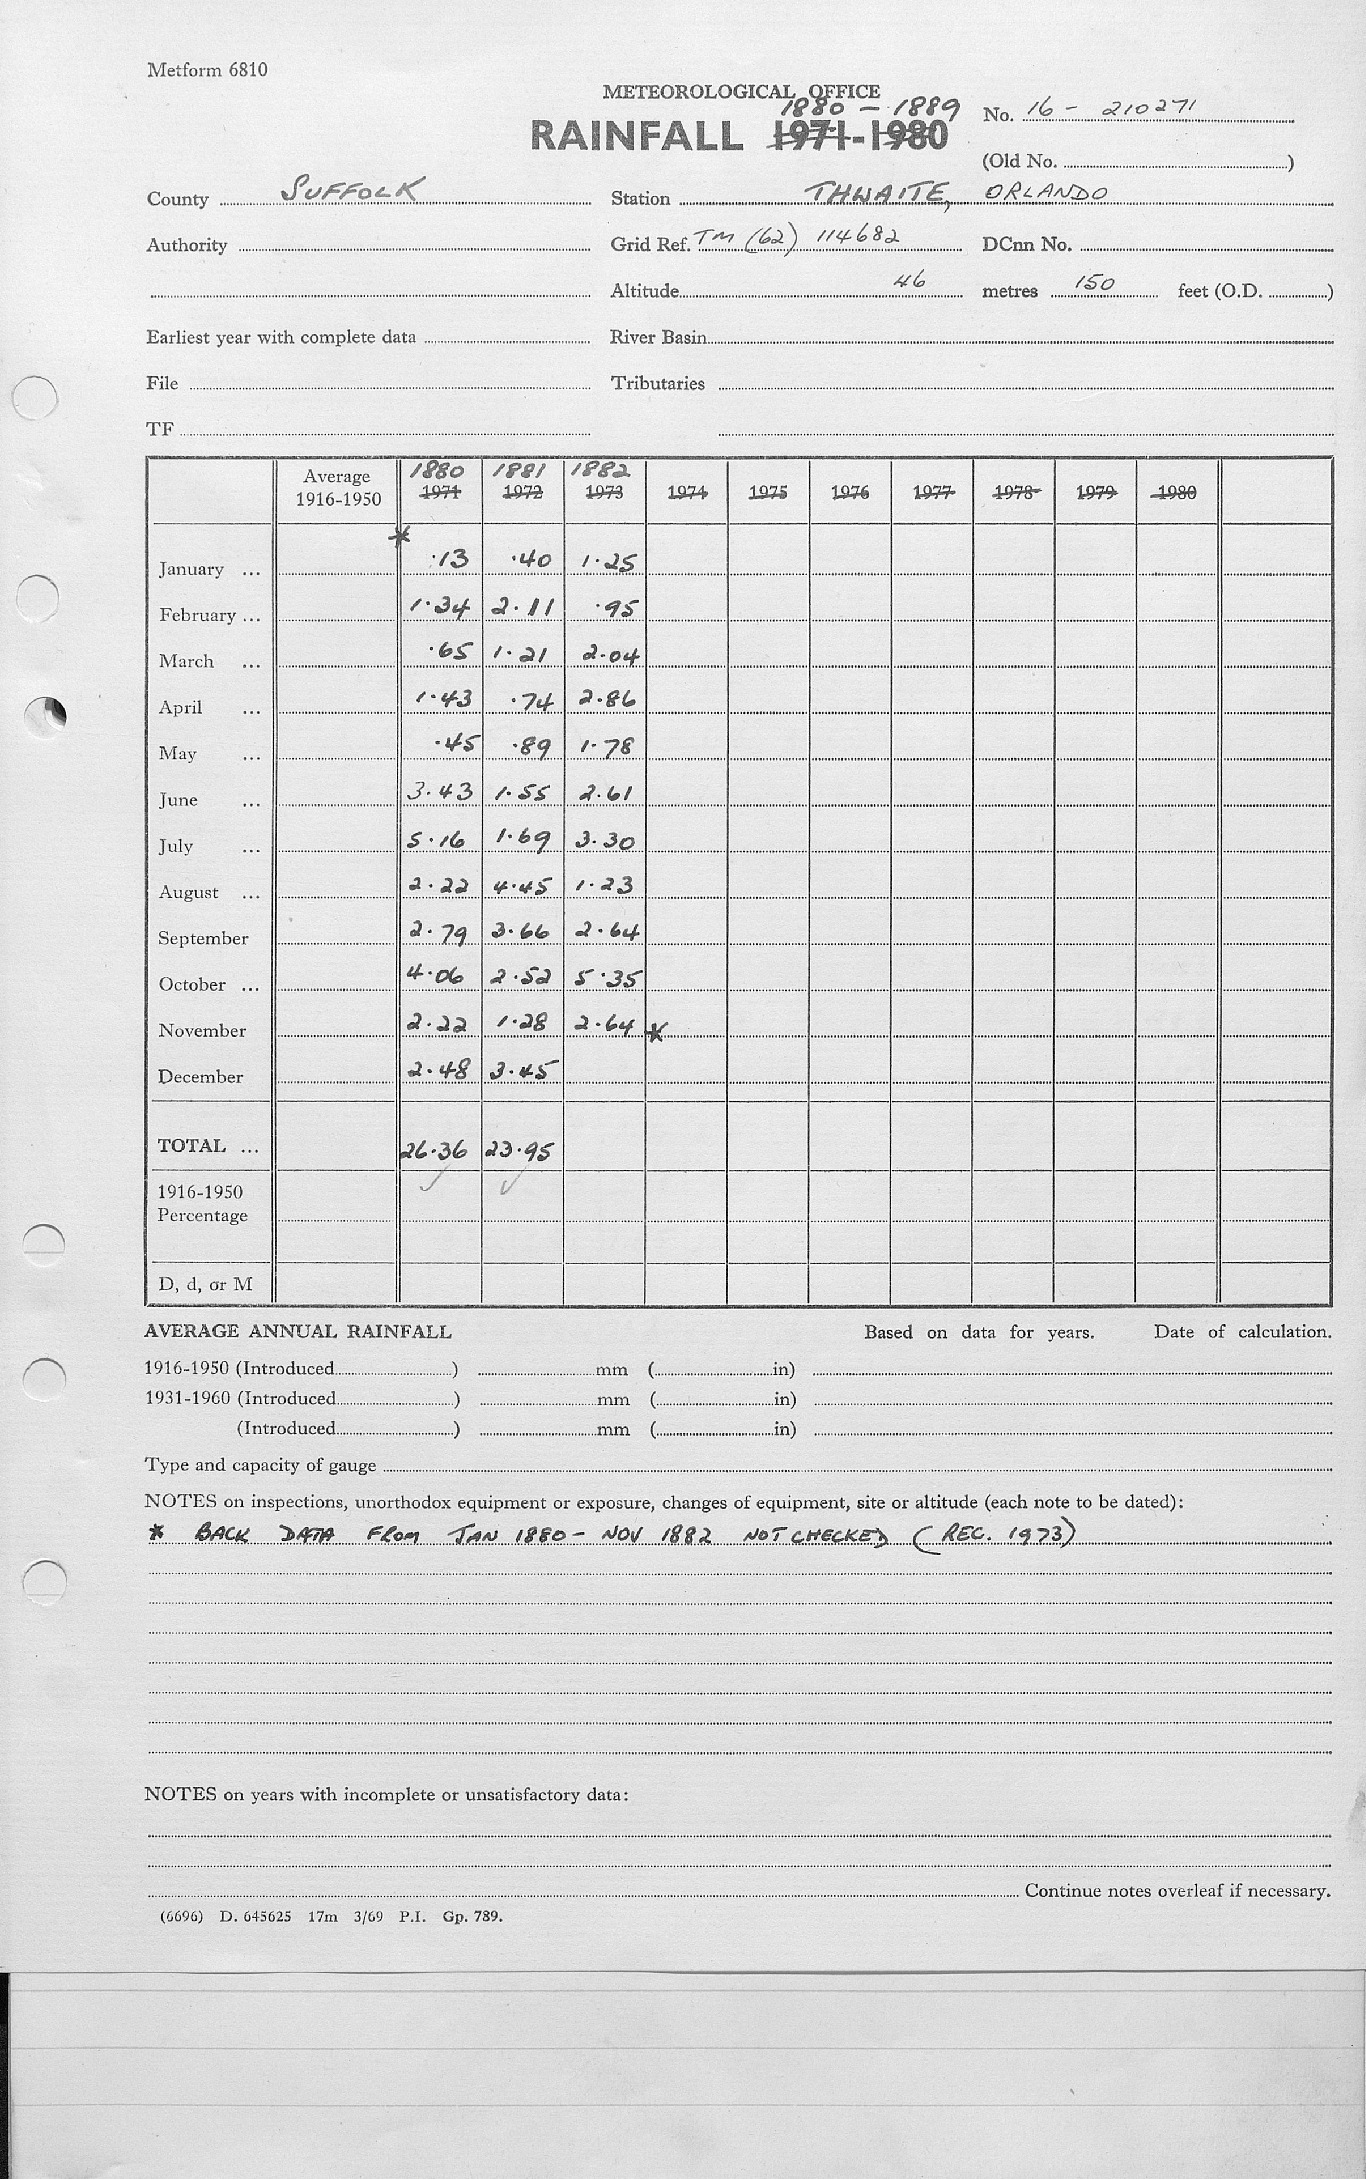 Metform 6810
METEOROLOGICAL OFFICE
1880 - 1889
RAINFALL 1971-1980
No. 16 - 210271
(Old No. )
County SUFFOLK Station THWAITE, ORLANDO
Authority Grid Ref. TM (62) 114682 DCnn No.
Altitude 46 metres 150 feet (O.D. )
Earliest year with complete data River Basin
File Tributaries
TF
1880 1881 1882
Average 1916-1950 1971 1972 1973 1974 1975 1976 1977 1978 1979 1980
*
January ... ·13 ·40 1·25
February ... 1·34 2·11 ·95
March ... ·65 1·21 2·04
April ... 1·43 ·74 2·86
May ... ·45 ·89 1·78
June ... 3·43 1·55 2·61
July ... 5·16 1·69 3·30
August ... 2·22 4·45 1·23
September 2·79 3·66 2·64
October ... 4·06 2·52 5·35
November 2·22 1·28 2·64 *
December 2·48 3·45
TOTAL ... 26·36 23·95
1916-1950
Percentage
D, d, or M
AVERAGE ANNUAL RAINFALL Based on data for years. Date of calculation.
1916-1950 (Introduced ) mm ( in)
1931-1960 (Introduced ) mm ( in)
(Introduced ) mm ( in)
Type and capacity of gauge
NOTES on inspections, unorthodox equipment or exposure, changes of equipment, site or altitude (each note to be dated):
* BACK DATA FROM JAN 1880 - NOV 1882 NOT CHECKED (REC. 1973)
NOTES on years with incomplete or unsatisfactory data:
Continue notes overleaf if necessary.
(6696) D. 645625 17m 3/69 P.I. Gp. 789.